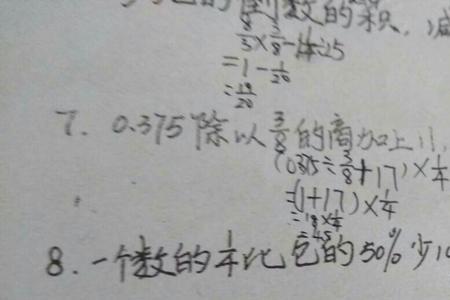 的倒数的积,减
8/3×3/8-1/4÷5
=1-1/20
=19/20
7. 0.375除以3/8的商加上
(0.375÷3/8+17)×1/4
=(1+17)×1/4
=18×1/4
=4.5
8. 一个数的1/4比它的50%少10